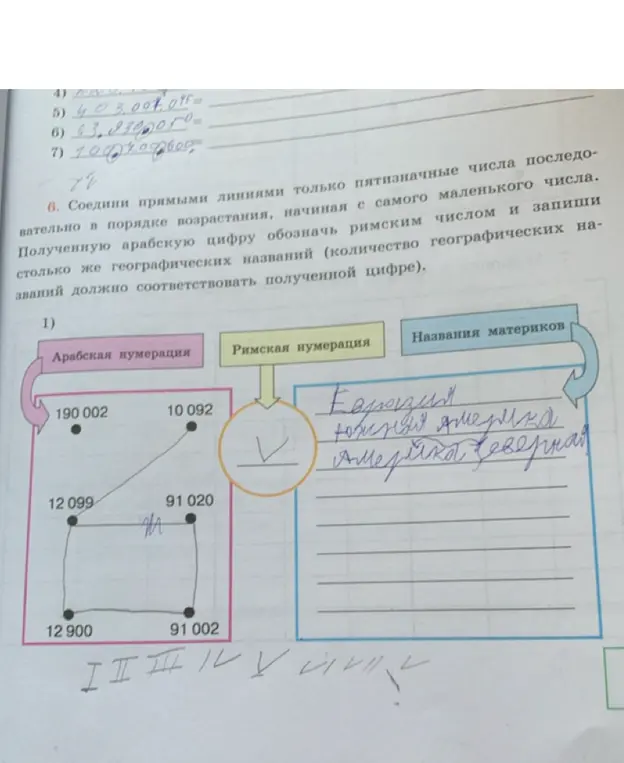 4)
5) 403.007.045=
6)
7)
6. Соедини прямыми линиями только пятизначные числа последо-
вательно в порядке возрастания, начиная с самого маленького числа.
Полученную арабскую цифру обозначь римским числом и запиши
столько же географических названий (количество географических на-
званий должно соответствовать полученной цифре).
1)
Арабская нумерация
Римская нумерация
Названия материков
190 002
10 092
V
Евразия
Южная Америка
Америка Северная
12 099
91 020
12 900
91 002
I II III IV V VI VII